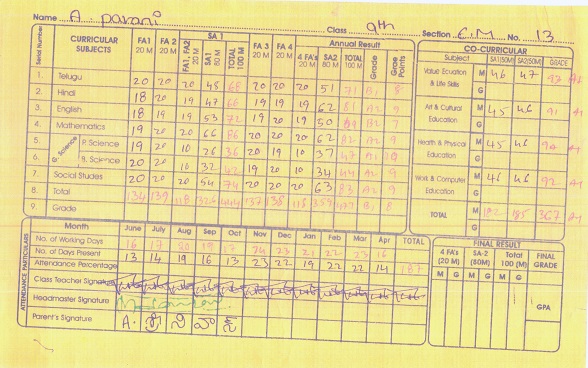 Name A. pavani Class 9th Section E.M. No. 13
Serial Number CURRICULAR SUBJECTS FA1 20 M FA 2 20 M FA1, FA2 20 M SA 1 SA1 80 M TOTAL 100 M FA 3 20 M FA 4 20 M Annual Result 4 FA's 20 M SA2 80 M TOTAL 100 M Grade Grade Points
1. Telugu 20 20 20 48 68 20 20 20 51 71 B1 8
2. Hindi 18 20 19 47 66 19 19 19 62 81 A2 9
3. English 18 19 19 53 72 19 20 19 50 B1
4. Mathematics 19 20 20 66 86 20 20 20 62 A2 9
5. G. Science P. Science 19 20 10 26 36 20 19 10 37 47 A1
6. B. Science 20 20 10 32 42 19 20 10 34 44 A2 9
7. Social Studies 20 20 20 54 74 20 20 20 63 83 A2 9
8. Total 134 139 118 326 444 137 138 118 359 477
9. Grade
CO-CURRICULAR
Subject SA1(50M) SA2(50M) GRADE
Value Equation & Life Skills M 46 47 93 A1
G
Art & Cultural Education M 45 46 91 A1
G
Health & Physical Education M 45 46
G
Work & Computer Education M 46 46 92 A1
G
TOTAL M 182 185 367 A1
G
ATTENDANCE PARTICULARS
Month June July Aug Sep Oct Nov Dec Jan Feb Mar Apr TOTAL
No. of Working Days 16 17 20 19 17 24 23 21 22 23 16
No. of Days Present 13 14 19 16 13 23 22 19 22 22 14 187
Attendance Percentage
Class Teacher Signature
Headmaster Signature
Parent's Signature A.
FINAL RESULT
4 FA's (20 M) SA-2 (80M) Total 100 (M) FINAL GRADE
M G M G M G
GPA